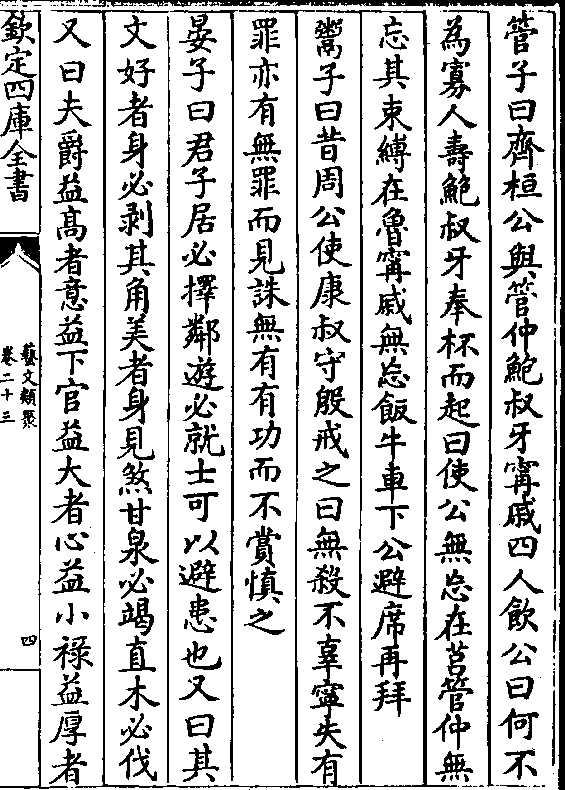 管子曰齊桓公與管仲鮑叔牙甯戚四人飲公曰何不
為寡人壽鮑叔牙奉杯而起曰使公無忘在莒管仲無
忘其束縛在魯甯戚無忘飯牛車下公避席再拜
鬻子曰昔周公使康叔守殷戒之曰無殺不辜寧失有
罪亦有無罪而見誅無有有功而不賞慎之
晏子曰君子居必擇鄰遊必就士可以避患也又曰其
文好者身必剥其角美者身見煞甘泉必竭直木必伐
又曰夫爵益髙者意益下官益大者心益小祿益厚者
欽定四庫全書
藝文類聚
卷二十三
四